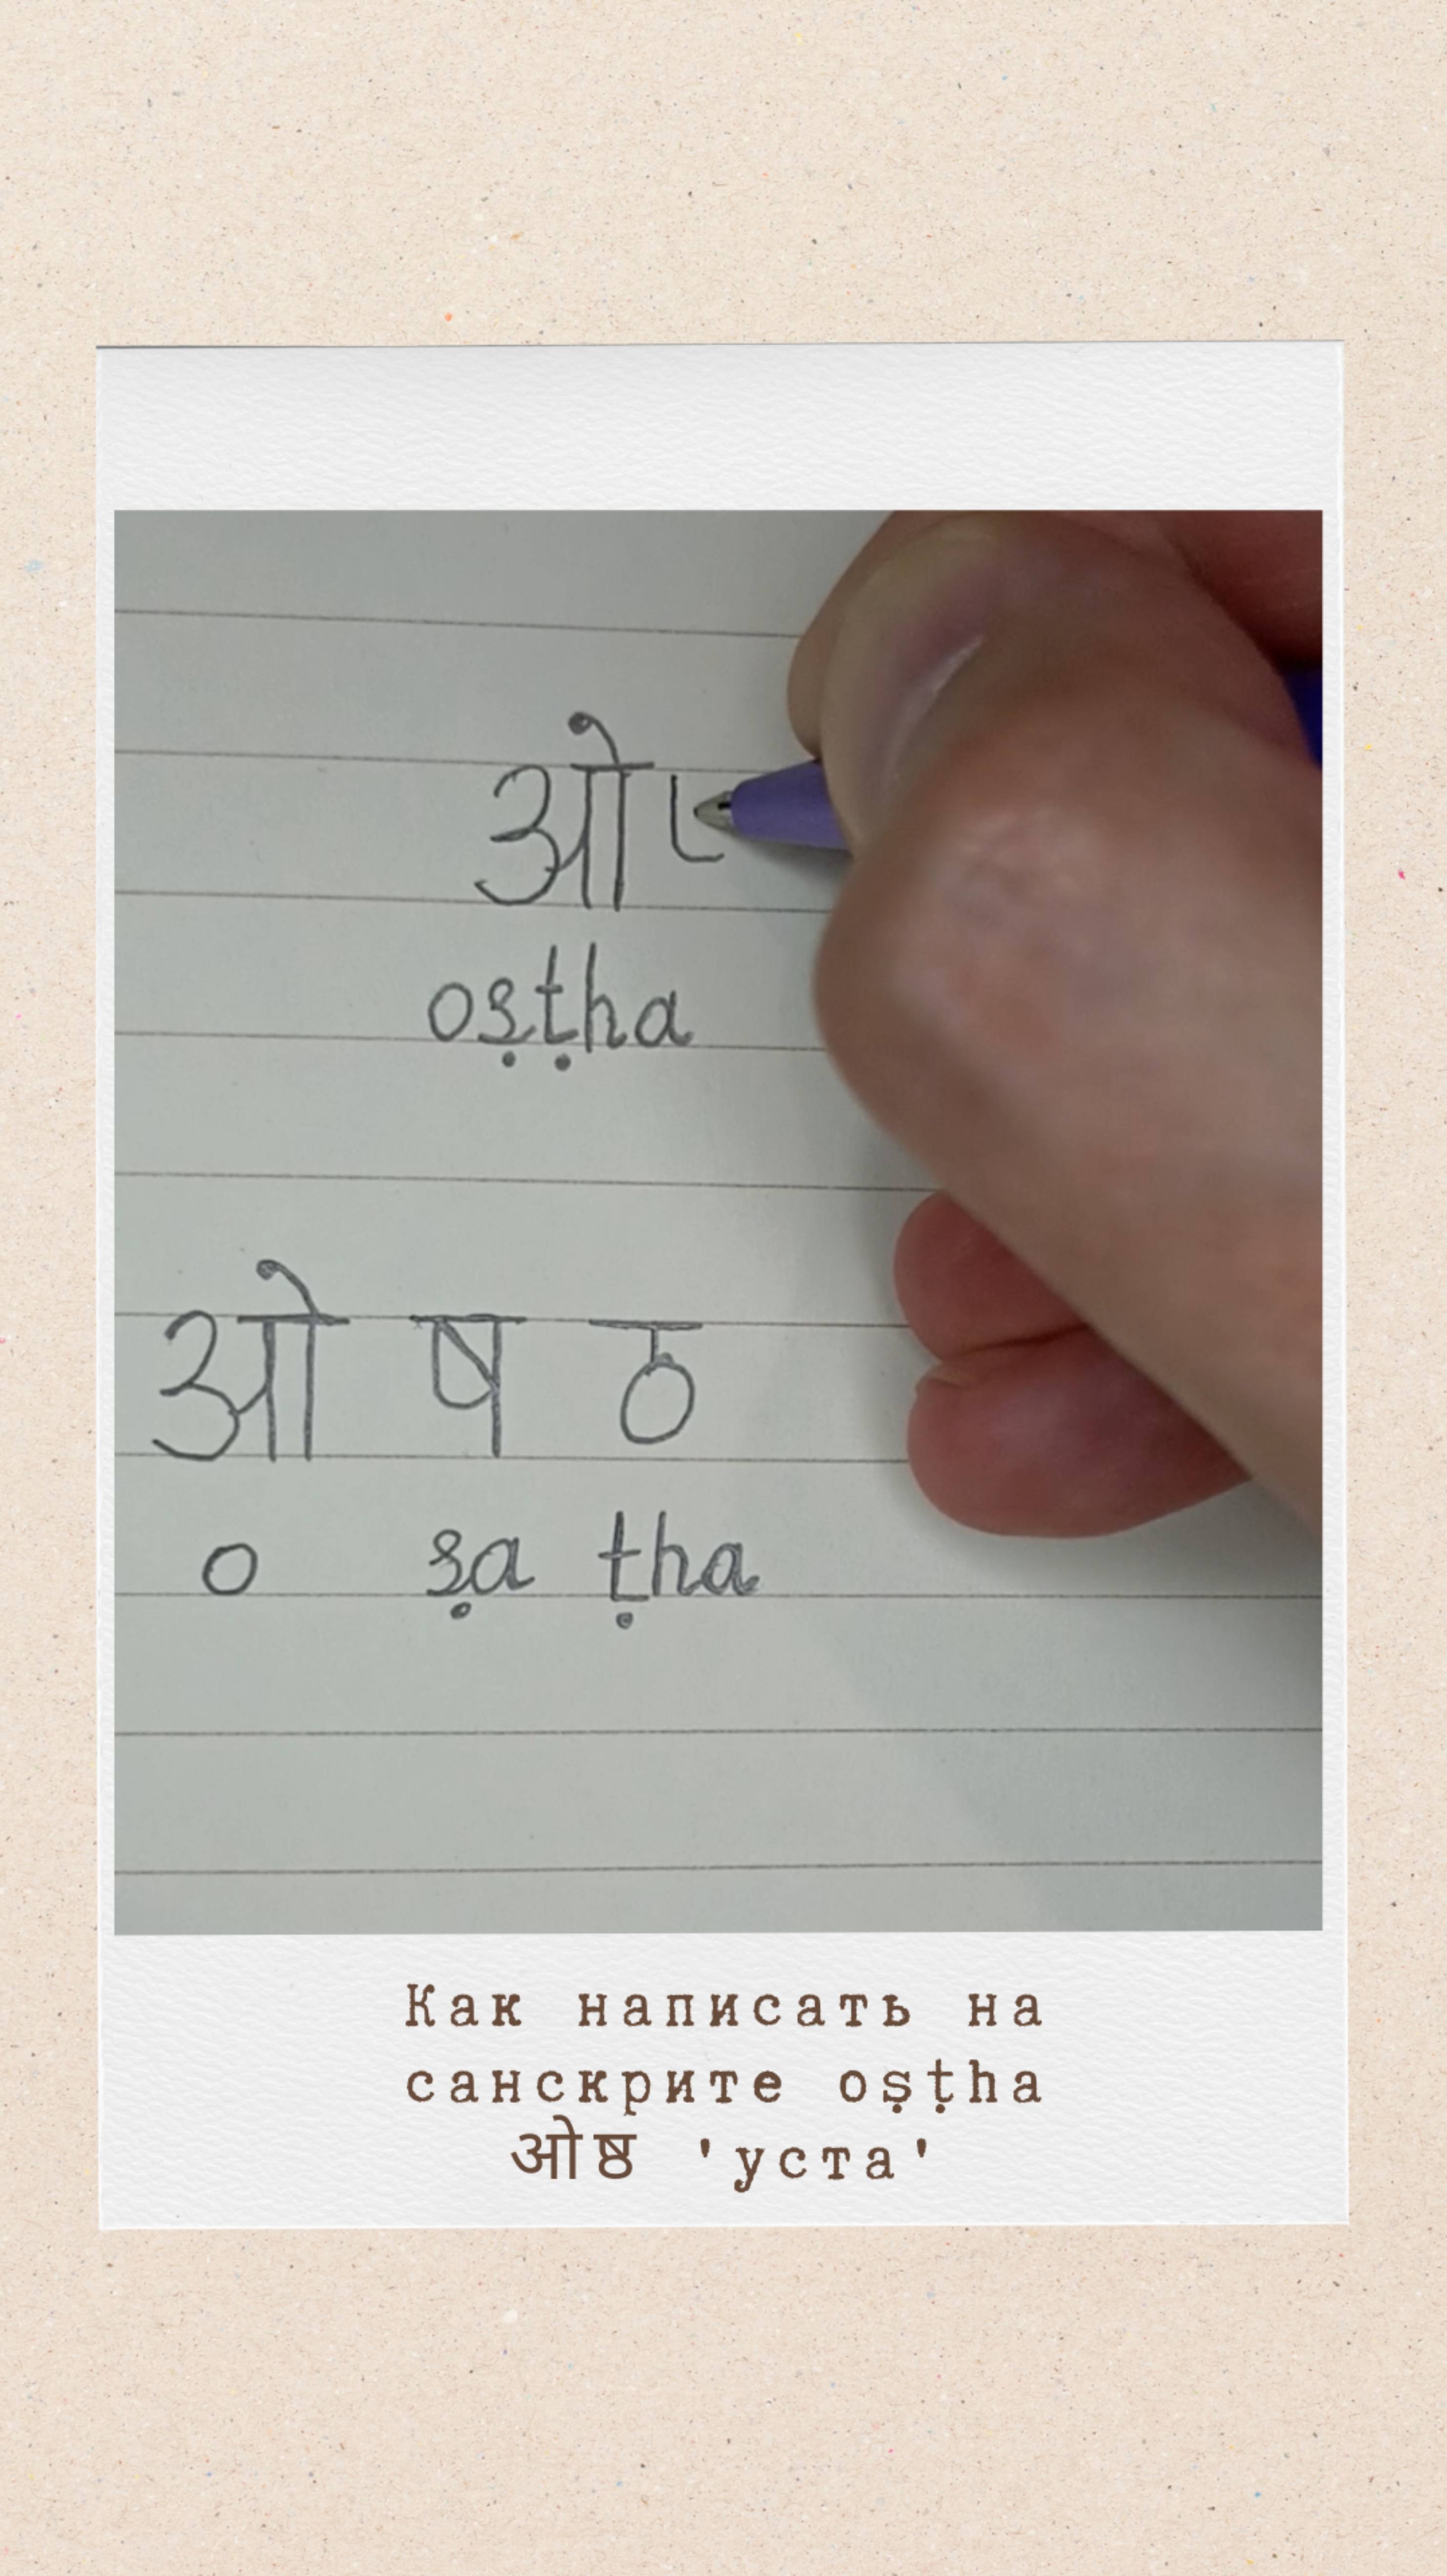 ओ
oṣṭha
ओ ष ठ
o ṣa ṭha
Как написать на
санскрите oṣṭha
ओष्ठ 'уста'